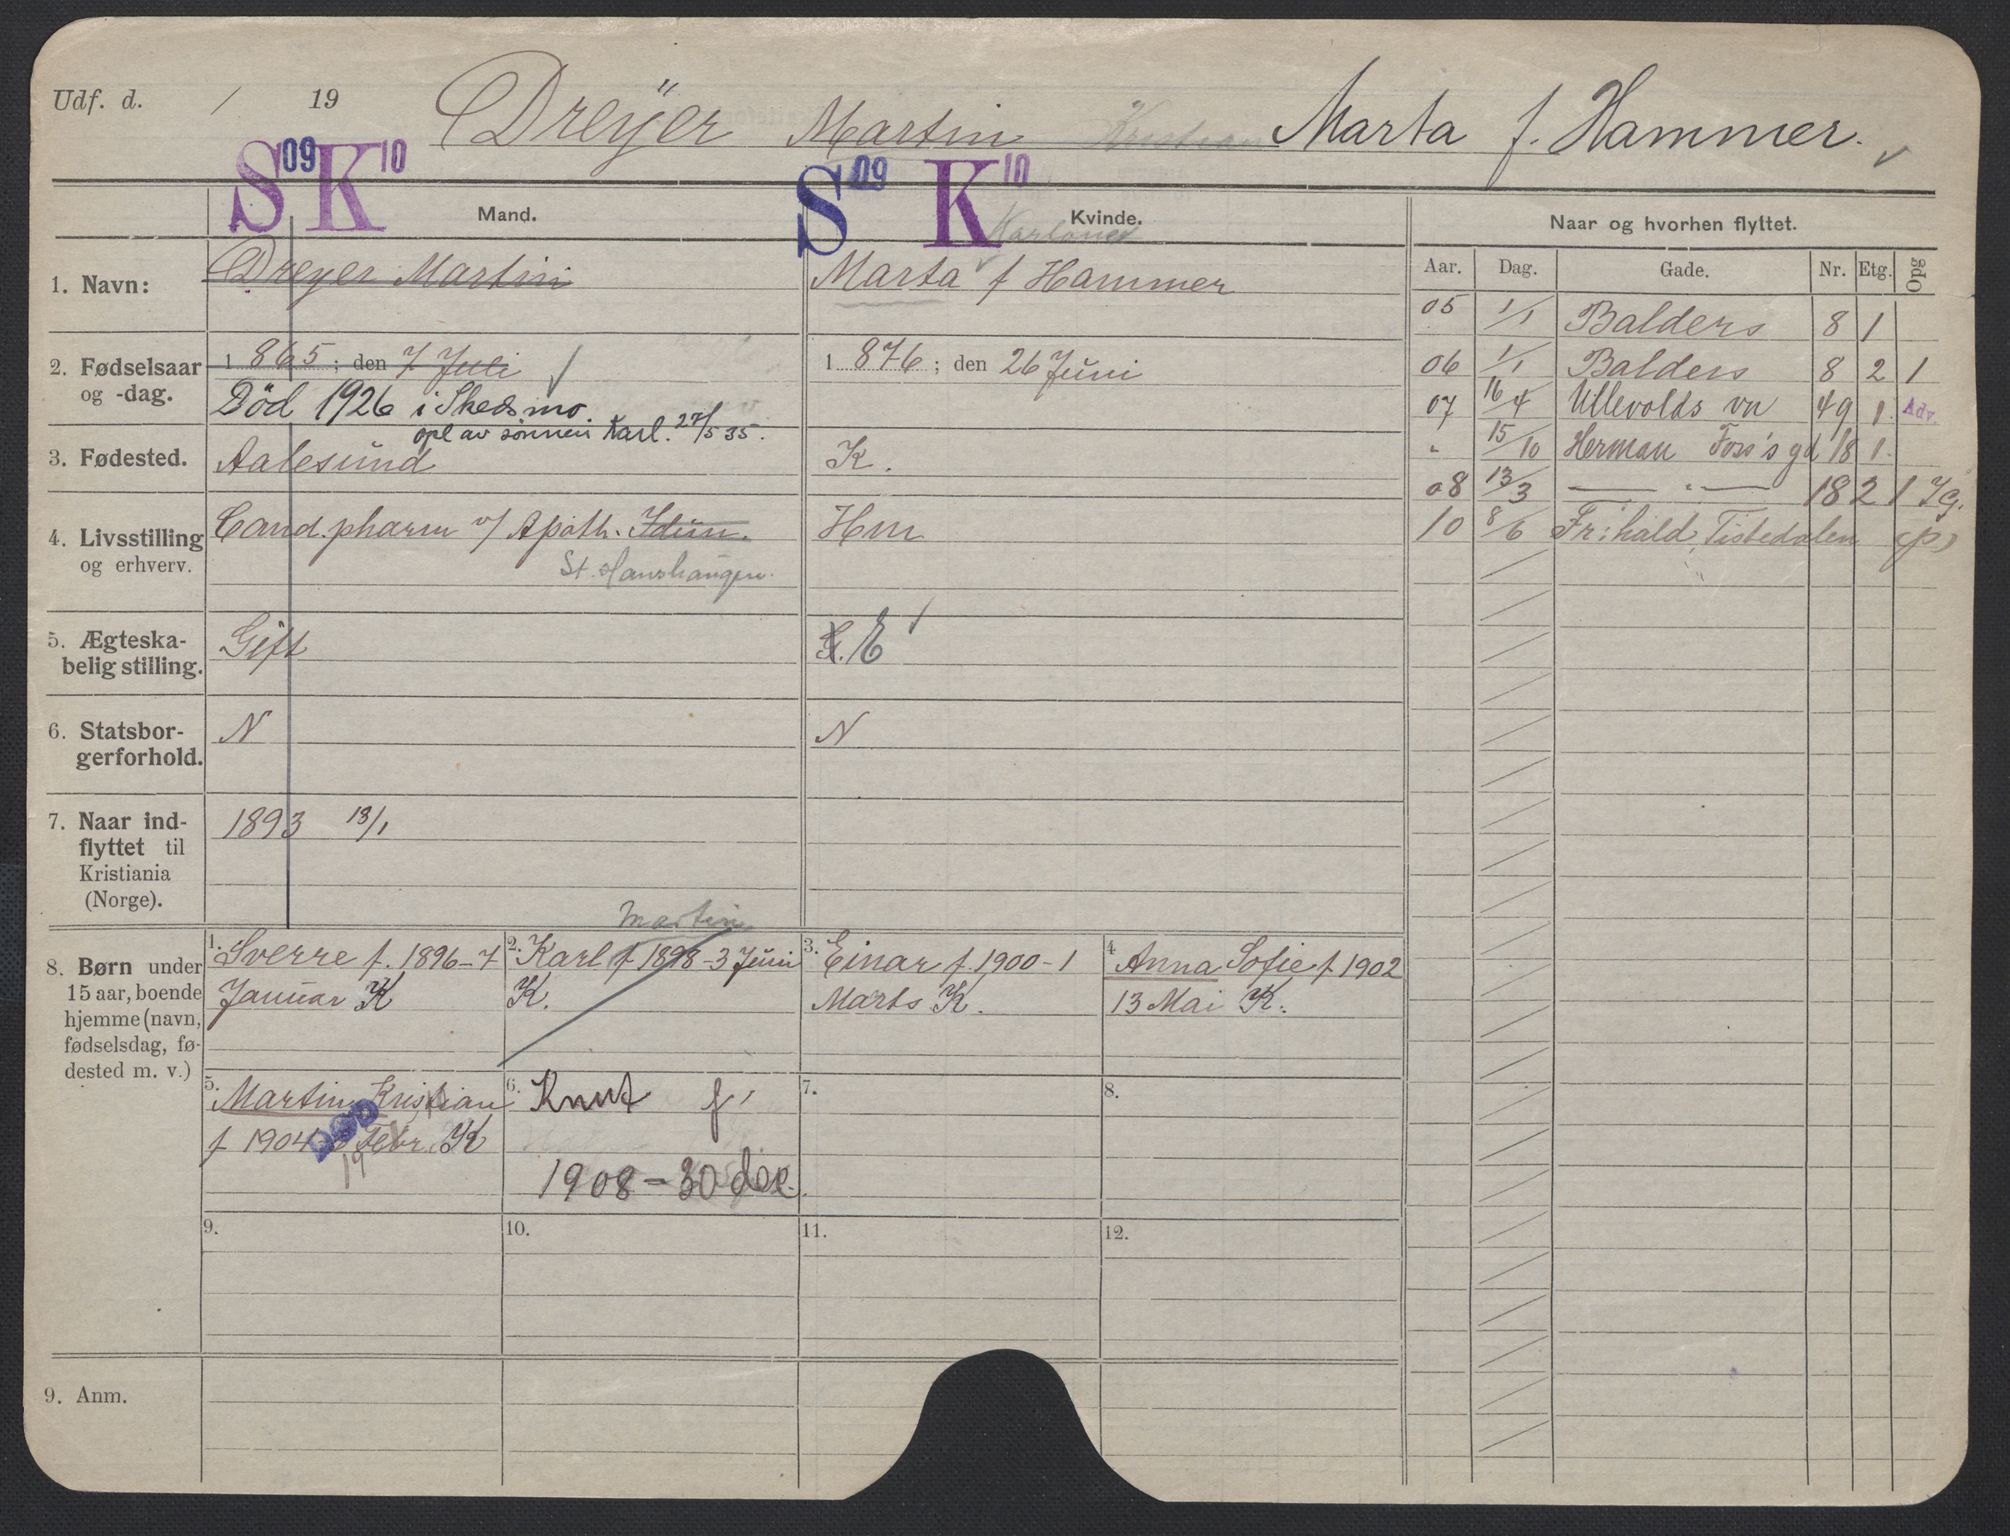 Udf. d. / 19 Dreÿer Martin Kristian Marta f. Hammer.
S 09 K 10 S 09 K 10
Mand. Kvinde. Naar og hvorhen flyttet.
Aar. Dag. Gade. Nr. Etg. Opg
1. Navn: Dreyer Martin
Marta f Hammer
2. Fødselsaar og -dag.
1 865; den 7 Juli
Død 1926 i Skedsmo
opl av sønnen Karl. 27/5 35.
1 876; den 26 Juni
3. Fødested.
Aalesund
K.
4. Livsstilling og erhverv.
Cand. pharm v/ Apoth. Idun.
St. Hanshaugen.
Hm
5. Ægteska-
belig stilling.
Gift
E
6. Statsbor-
gerforhold.
N
N
7. Naar ind-
flyttet til
Kristiania
(Norge).
1893 13/1
05 1/1 Balders 8 1
06 1/1 Balders 8 2 1
07 16/4 Ullevolds vn 49 1 Adv.
" 15/10 Herman Foss's gd 18 1
08 13/3 — " — 18 2 1
10 8/6 Fr:hald, Tistedalen (p)
8. Børn under
15 aar, boende
hjemme (navn,
fødselsdag, fø-
dested m. v.)
1. Sverre f. 1896-7
Januar K
Martin
2. Karl f 1898-3 Juni
K.
3. Einar f. 1900-1
Marts K.
4. Anna Sofie f 1902
13 Mai K.
5. Martin Kristian
f 1904 Febr. K
DØD
19
6. Knut f.
1908-30 dec.
7.
8.
9.
10.
11.
12.
9. Anm.